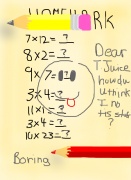 HOMEWORK
7×12 = ?
8×2 = ?
9×7 = ?
3×4 = ?
11×1 = ?
3×4 = ?
10×23 = ?
Dear
T Juice
how du
u think
I no
Boring